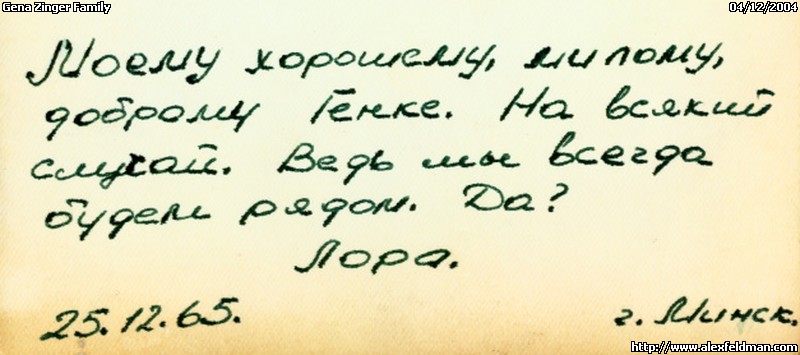 Gena Zinger Family 04/12/2004
Моему хорошему, милому,
доброму Генке. На всякий
случай. Ведь мы всегда
будем рядом. Да?
Лора.
25.12.65. г. Минск.
http://www.alexfeldman.com